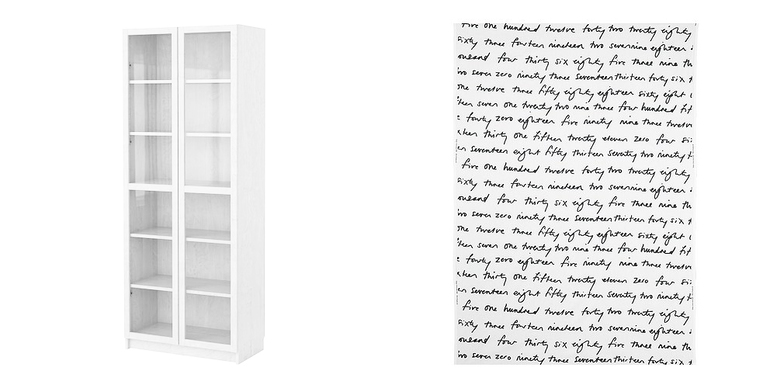 five one hundred twelve forty two twenty eighty
sixty three fourteen nineteen two seven nine eighteen
thirty six eighty five three nine
two seven zero ninety three seventeen thirteen forty six
one twelve three fifty eighty eighteen sixty eight
seven one twenty two nine three four hundred
forty zero eighteen five ninety nine three twelve
thirty one fifteen twenty eleven zero four
seventeen eight fifty thirteen seventy two ninety
five one hundred twelve forty two twenty eighty
sixty three fourteen nineteen two seven nine eighteen
thirty six eighty five three nine
two seven zero ninety three seventeen thirteen forty six
one twelve three fifty eighty eighteen sixty eight
seven one twenty two nine three four hundred
forty zero eighteen five ninety nine three twelve
thirty one fifteen twenty eleven zero four
seventeen eight fifty thirteen seventy two ninety
five one hundred twelve forty two twenty eighty
sixty three fourteen nineteen two seven nine eighteen
thirty six eighty five three nine
two seven zero ninety three seventeen thirteen forty six